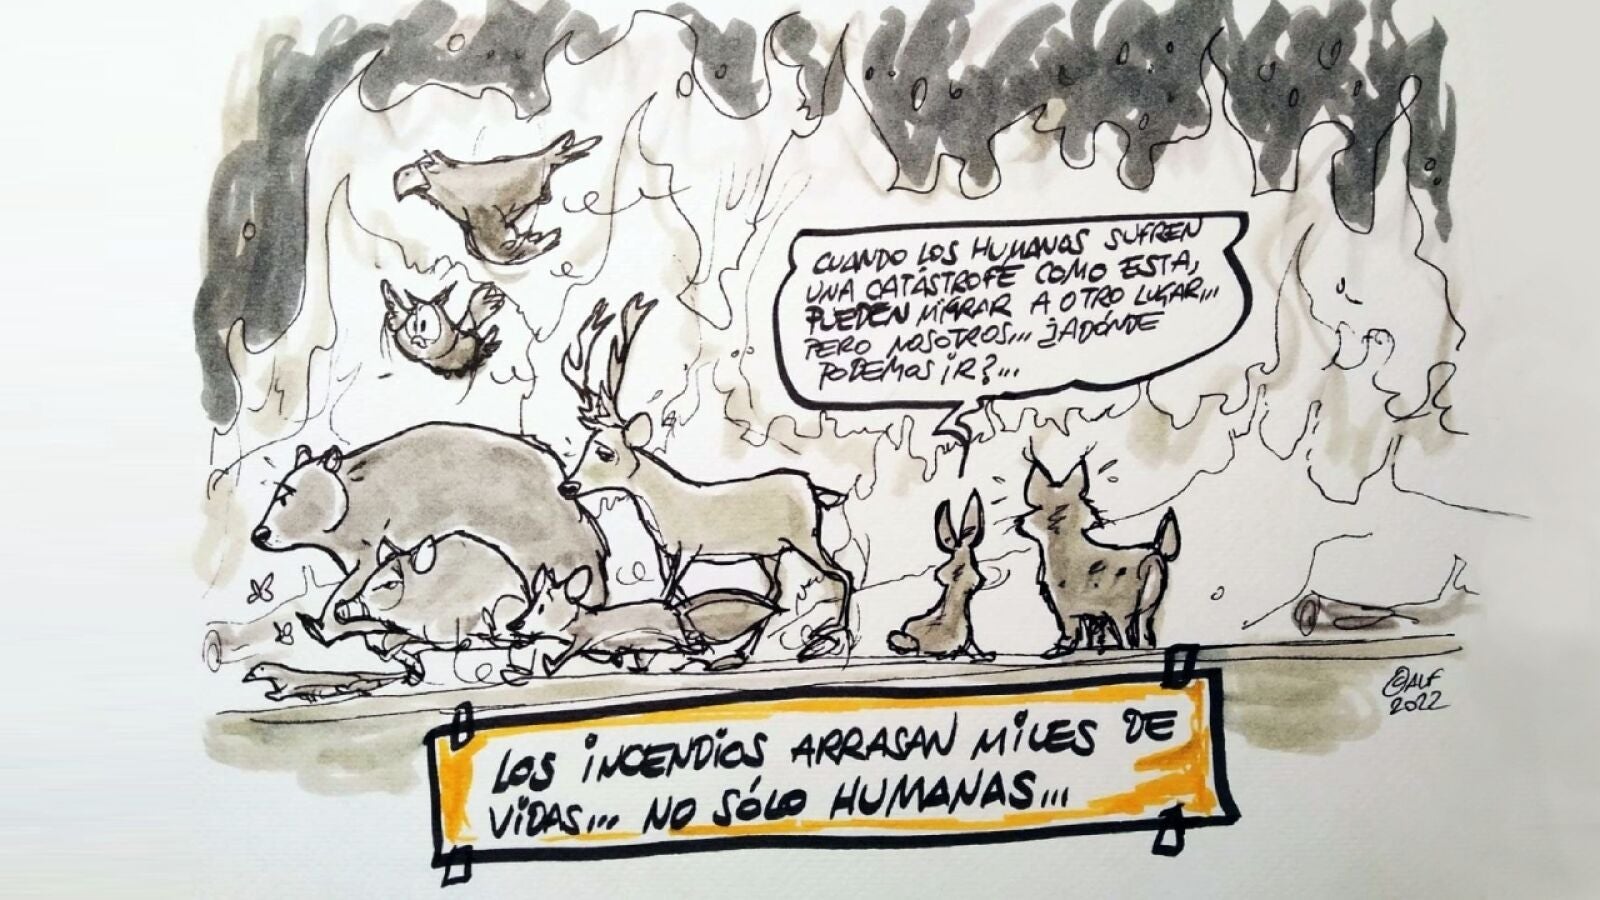 CUANDO LOS HUMANOS SUFREN
UNA CATÁSTROFE COMO ESTA,
PUEDEN MIGRAR A OTRO LUGAR...
PERO NOSOTROS... ¿ADÓNDE
PODEMOS IR?...
©ALF
2022
LOS INCENDIOS ARRASAN MILES DE
VIDAS... NO SÓLO HUMANAS...